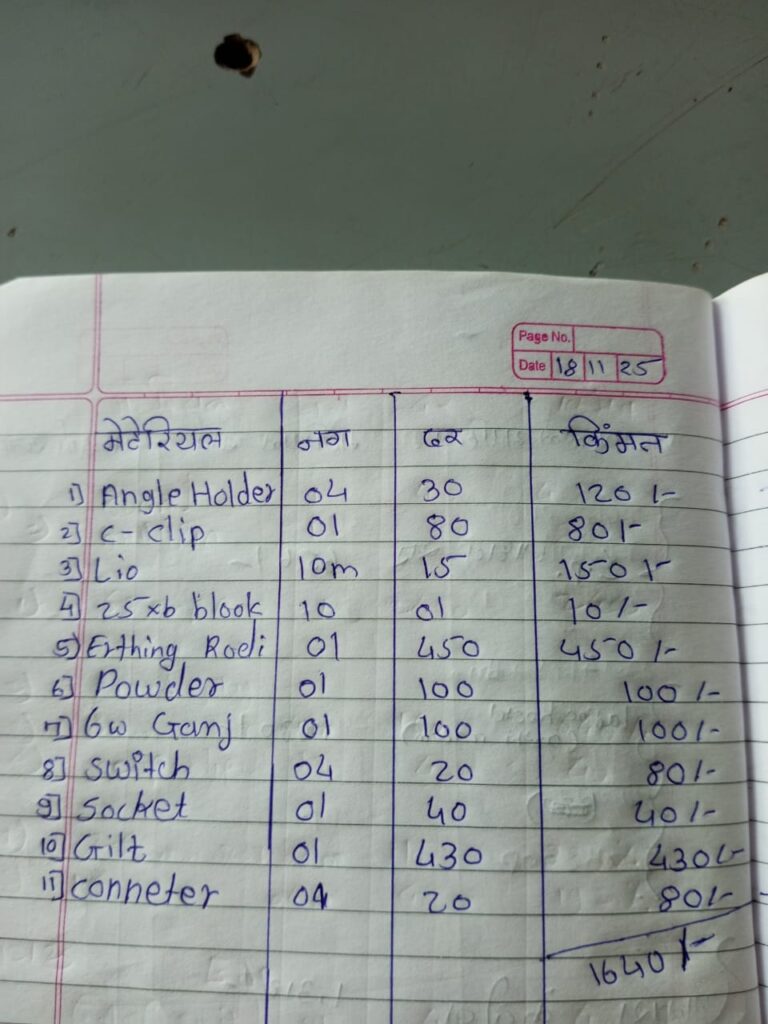 Page No.
Date 18 11 25
मेटेरियल नग दर किंमत
1) Angle Holder 04 30 120/-
2] c-clip 01 80 80/-
3] Lio 10m 15 150/-
4] 25xb blook 10 01 10/-
5) Erthing Rodi 01 450 450/-
6] Powder 01 100 100/-
7] 6w Ganj 01 100 100/-
8] switch 04 20 80/-
9] Socket 01 40 40/-
10] Gilt 01 430 430/-
11] conneter 04 20 80/-
1640/-